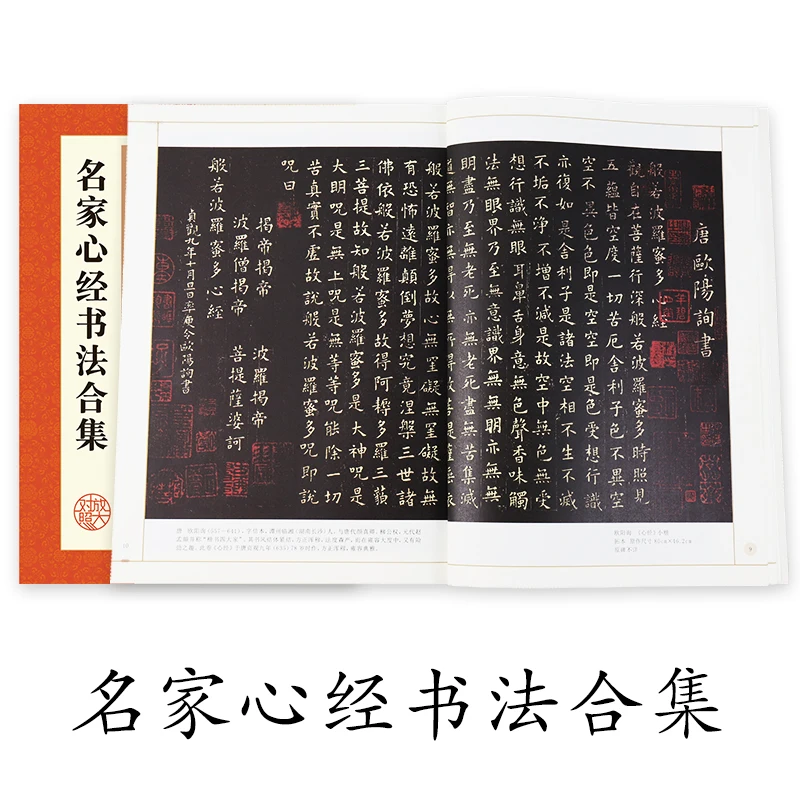 名家心经书法合集
放大
对照
唐歐陽詢書
般若波羅蜜多心經
觀自在菩薩行深般若波羅蜜多時照見
五蘊皆空度一切苦厄舍利子色不異空
空不異色色即是空空即是色受想行識
亦復如是舍利子是諸法空相不生不滅
不垢不淨不增不減是故空中無色無受
想行識無眼耳鼻舌身意無色聲香味觸
法無眼界乃至無意識界無無明亦無無
明盡乃至無老死亦無老死盡無苦集滅
道無智亦無得以無
般若波羅蜜多故心無罣礙無罣礙故無
有恐怖遠離顛倒夢想究竟涅槃三世諸
佛依般若波羅蜜多故得阿耨多羅三藐
三菩提故知般若波羅蜜多是大神咒是
大明咒是無上咒是無等等咒能除一切
苦真實不虛故說般若波羅蜜多咒即說
咒曰
揭帝揭帝 波羅揭帝
波羅僧揭帝 菩提薩婆訶
般若波羅蜜多心經
貞觀九年十月旦日率更令歐陽詢書
欧阳询 《心经》小楷
名家心经书法合集